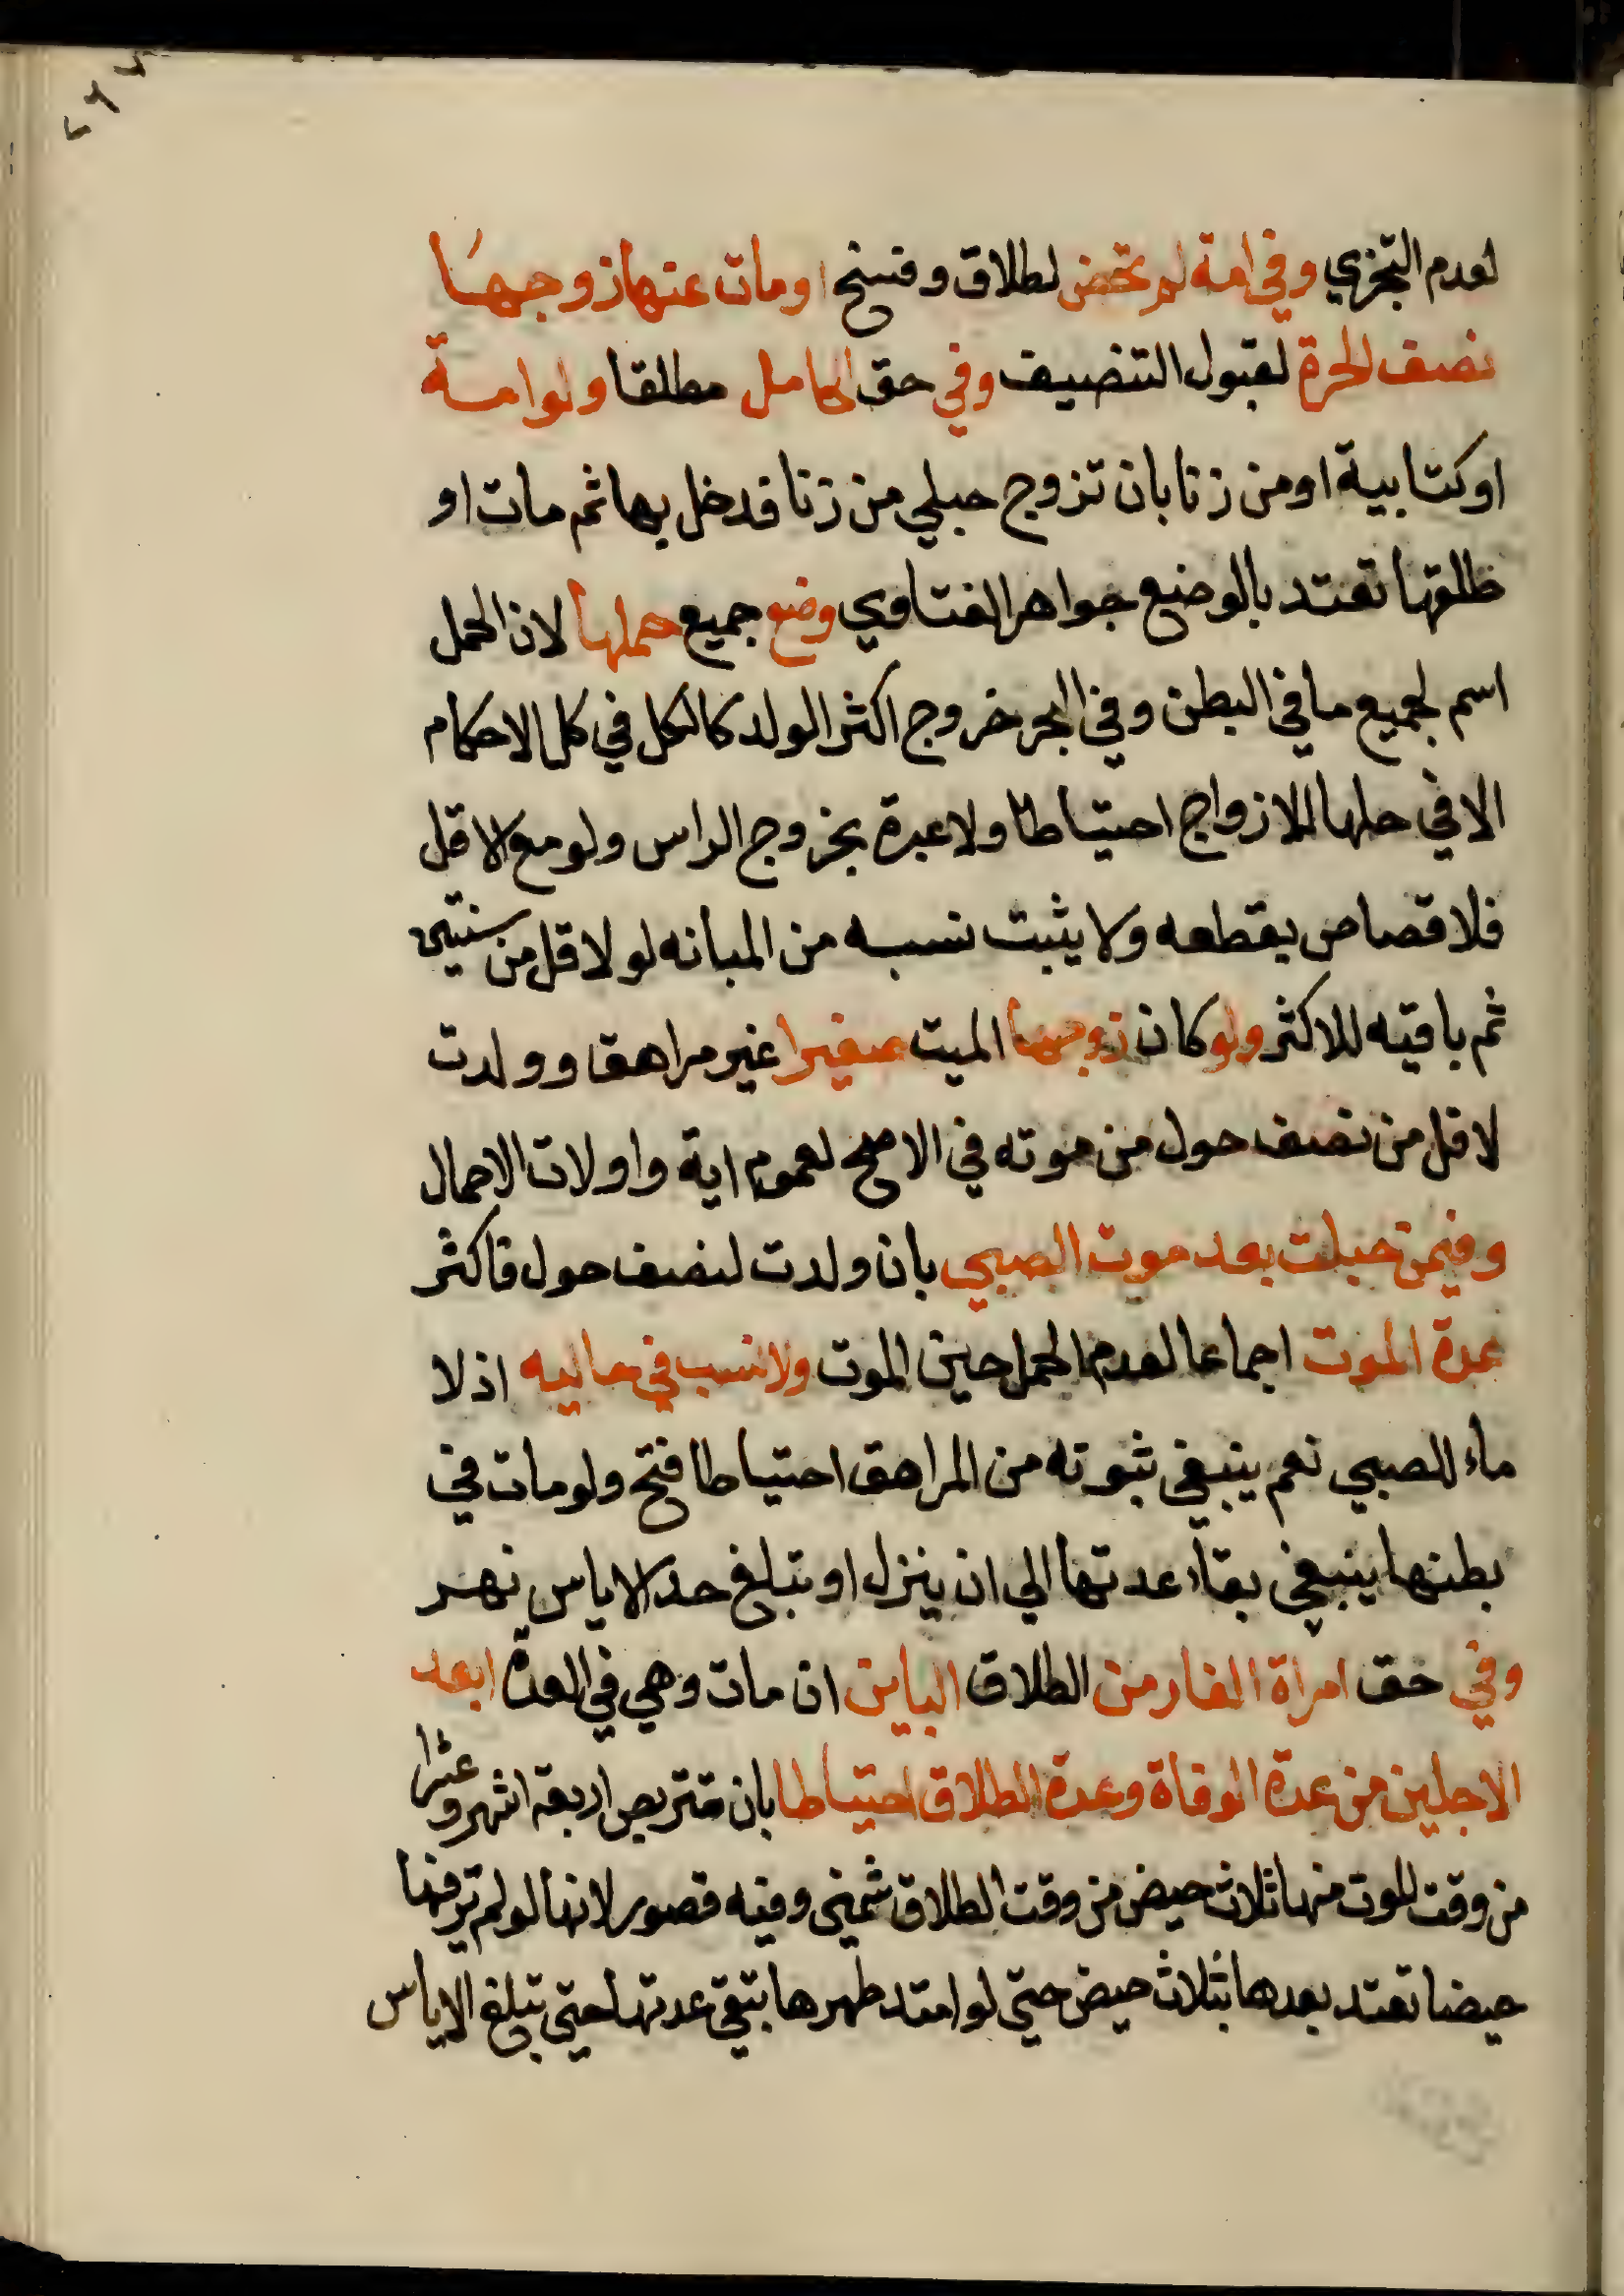 لعدم التجزي وفي امة لم تحض لطلاق وفسخ او مات عنها زوجها
نصف الحرة لقبول التنصيف وفي حق الحامل مطلقا ولو امة
او كتابية او من زنا بان تزوج حبلي من زنا فدخل بها ثم مات او
طلقها تعتد بالوضع جواهر الفتاوي وضع جميع حملها لان الحمل
اسم لجميع ما في البطن وفي البحر خروج اكثر الولد كالكل في كل الاحكام
الا في حلها للازواج احتياطا ولا عبرة بخروج الراس ولو مع الاقل
فلا قصاص بقطعه ولا يثبت نسبه من المبانه لو لاقل من سنتين
ثم باقيه للاكثر ولو كان زوجها الميت صغيرا غير مراهق وولدت
لاقل من نصف حول من موته في الاصح لعموم اية واولات الاحمال
وفيمن حبلت بعد موت الصبي بان ولدت لنصف حول فاكثر
عدة الموت اجماعا لعدم الحمل حين الموت ولا نسب في حاليه اذ لا
ماء للصبي نعم ينبغي ثبوته من المراهق احتياطا فتح ولو مات في
بطنها ينبغي بقاء عدتها الي ان ينزل او تبلغ حد الاياس نهر
وفي حق امراة الفار من الطلاق الباين ان مات وهي في العدة ابعد
الاجلين من عدة الوفاة وعدة الطلاق احتياطا بان تتربص اربعة اشهر وعشرا
من وقت الموت منها ثلاث حيض من وقت الطلاق شمني وفيه قصور لانها لو لم تر فيها
حيضا تعتد بعدها بثلاث حيض حتي لو امتد طهرها تبقي عدتها حتي تبلغ الاياس